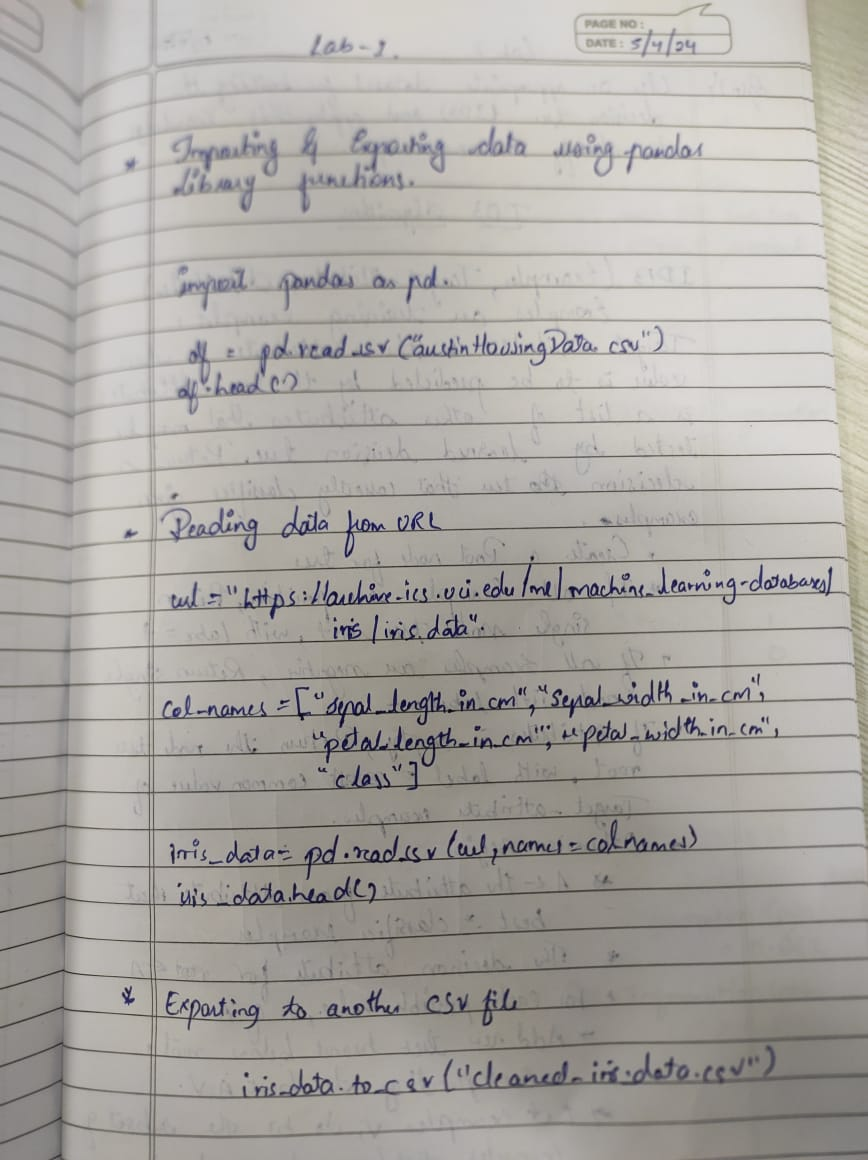 PAGE NO:
DATE: 5/4/24
Lab-1.
* Importing & Exporting data using pandas
library functions.
import pandas as pd.
df = pd.read_csv ("austinHousingData.csv")
df.head()
* Reading data from URL
url = "https://archive.ics.uci.edu/ml/machine_learning-databases/
iris/iris.data".
col_names = ["sepal_length_in_cm", "sepal_width_in_cm",
"petal_length_in_cm", "petal_width_in_cm",
"class"]
iris_data = pd.read_csv (url, names = col_names)
iris_data.head()
* Exporting to another CSV file
iris_data.to_csv ("cleaned_iris_data.csv")